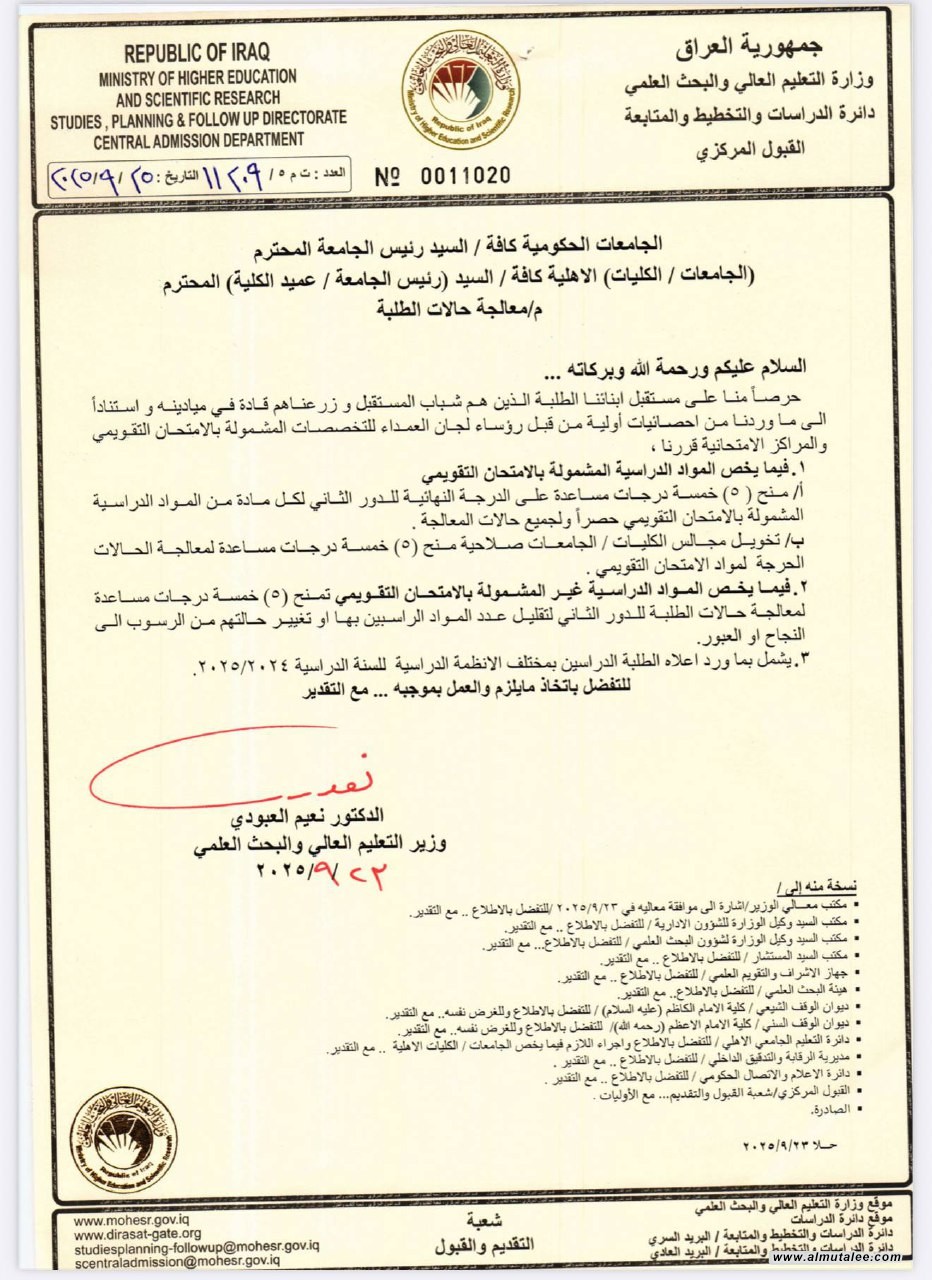 REPUBLIC OF IRAQ
MINISTRY OF HIGHER EDUCATION
AND SCIENTIFIC RESEARCH
STUDIES , PLANNING & FOLLOW UP DIRECTORATE
CENTRAL ADMISSION DEPARTMENT
جمهورية العراق
وزارة التعليم العالي والبحث العلمي
دائرة الدراسات والتخطيط والمتابعة
القبول المركزي
Ministry of Higher Education and Scientific Research
Republic of Iraq
№ 0011020
العدد : ت م ٥ / ١١٢٠٩ التاريخ : ٢٥ / ٩ / ٢٠٢٥
الجامعات الحكومية كافة / السيد رئيس الجامعة المحترم
(الجامعات / الكليات) الاهلية كافة / السيد (رئيس الجامعة / عميد الكلية) المحترم
م/معالجة حالات الطلبة
السلام عليكم ورحمة الله وبركاته ...
حرصاً منا على مستقبل ابنائنا الطلبة الذين هم شباب المستقبل و زرعناهم قادة في ميادينه و استناداً
الى ما وردنا من احصائيات أولية من قبل رؤساء لجان العمداء للتخصصات المشمولة بالامتحان التقويمي
والمراكز الامتحانية قررنا ،
١. فيما يخص المواد الدراسية المشمولة بالامتحان التقويمي
أ/ منح ( ٥) خمسة درجات مساعدة على الدرجة النهائية للدور الثاني لكل مادة من المواد الدراسية
المشمولة بالامتحان التقويمي حصراً ولجميع حالات المعالجة .
ب/ تخويل مجالس الكليات / الجامعات صلاحية منح (٥) خمسة درجات مساعدة لمعالجة الحالات
الحرجة لمواد الامتحان التقويمي .
٢. فيما يخص المواد الدراسية غير المشمولة بالامتحان التقويمي تمنح (٥) خمسة درجات مساعدة
لمعالجة حالات الطلبة للدور الثاني لتقليل عدد المواد الراسبين بها او تغيير حالتهم من الرسوب الى
النجاح او العبور.
٣. يشمل بما ورد اعلاه الطلبة الدراسين بمختلف الانظمة الدراسية للسنة الدراسية ٢٠٢٥/٢٠٢٤.
للتفضل باتخاذ مايلزم والعمل بموجبه ... مع التقدير
الدكتور نعيم العبودي
وزير التعليم العالي والبحث العلمي
٢٣ /٩/ ٢٠٢٥
نسخة منه إلى /
مكتب معالي الوزير/اشارة الى موافقة معاليه في ٢٠٢٥/٩/٢٣ /للتفضل بالاطلاع .. مع التقدير.
مكتب السيد وكيل الوزارة للشؤون الادارية / للتفضل بالاطلاع .. مع التقدير.
مكتب السيد وكيل الوزارة لشؤون البحث العلمي / للتفضل بالاطلاع... مع التقدير.
مكتب السيد المستشار / للتفضل بالاطلاع .. مع التقدير.
جهاز الاشراف والتقويم العلمي / للتفضل بالاطلاع .. مع التقدير.
هيئة البحث العلمي / للتفضل بالاطلاع.. مع التقدير.
ديوان الوقف الشيعي / كلية الامام الكاظم (عليه السلام) / للتفضل بالاطلاع وللغرض نفسه.. مع التقدير.
ديوان الوقف السني / كلية الامام الاعظم (رحمه الله)/ للتفضل بالاطلاع وللغرض نفسه.. مع التقدير.
دائرة التعليم الجامعي الاهلي / للتفضل بالاطلاع واجراء اللازم فيما يخص الجامعات / الكليات الاهلية .. مع التقدير.
مديرية الرقابة والتدقيق الداخلي / للتفضل بالاطلاع .. مع التقدير .
دائرة الاعلام والاتصال الحكومي / للتفضل بالاطلاع .. مع التقدير .
القبول المركزي/شعبة القبول والتقديم... مع الأوليات .
الصادرة.
حلا ٢٠٢٥/٩/٢٣
Ministry of Higher Education and Scientific Research
Republic of Iraq
www.mohesr.gov.iq
www.dirasat-gate.org
studiesplanning-followup@mohesr.gov.iq
scentraladmission@mohesr.gov.iq
شعبة
التقديم والقبول
موقع وزارة التعليم العالي والبحث العلمي
موقع دائرة الدراسات
دائرة الدراسات والتخطيط والمتابعة / البريد السري
دائرة الدراسات والتخطيط والمتابعة / البريد العادي
www.almutalee.com